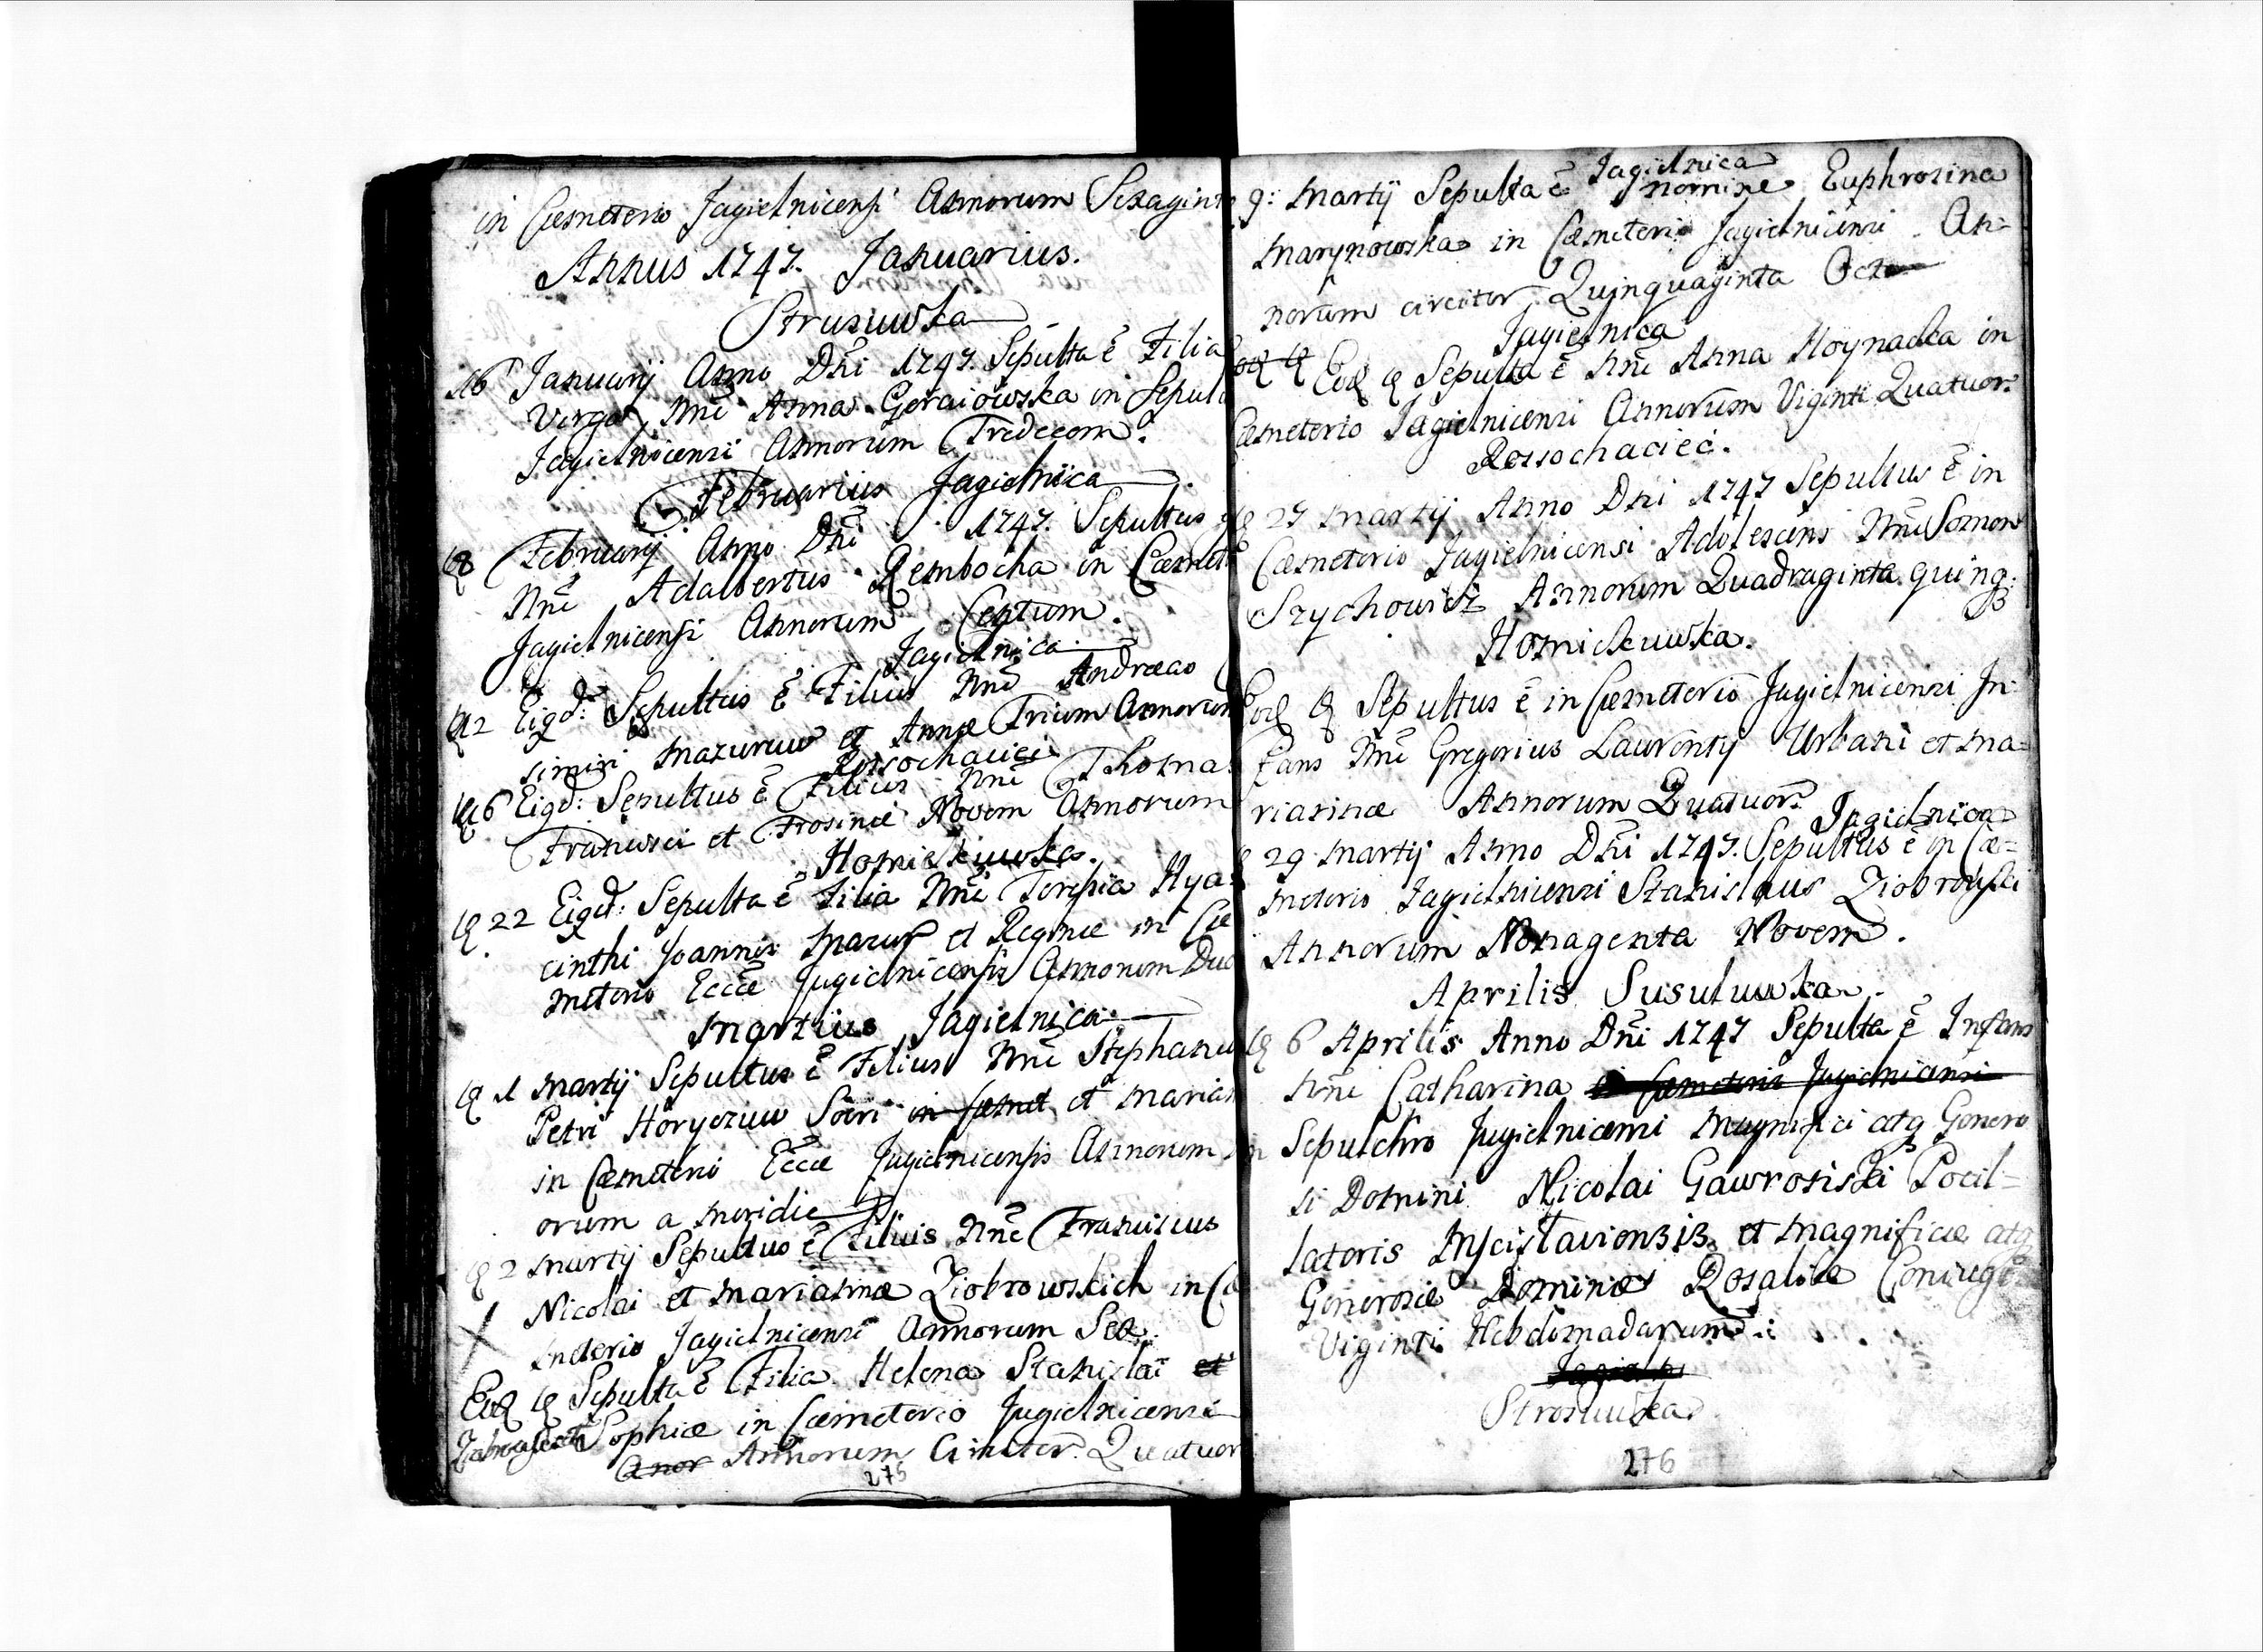 in Cæmeterio Jagielnicensi Annorum Sexagint
Annus 1747. Januarius.
Strusuwka
16 Januarij Anno Dni 1747. Sepulta ē Filia
Virgo Nnē Anna Geraiowska in Sepul
Jagielnicensi Annorum Tredecem.
Februarius Jagielnica
Februarij Anno Dni 1747. Sepultus
Nnē Adalbertus Rembocha in Cæmet
Jagielnicensi Annorum Septum.
Jagielnica
12 Eigd: Sepultus ē Filius Nnē Andræas
simiri Mazuruw et Annæ Trium Annorum
Rossochaciec
16 Eigd: Sepultus ē Filius Nnē Thomas
Francisci et Frosinæ Novem Annorum
Homickiuwka.
22 Eigd: Sepulta ē Filia Nnē Teresia Hya
cinthi Joannis Mazur et Reginæ in Cæ
meterio Eccæ Jagielnicensis Annorum Duo
Martius Jagielnica
1 Martij Sepultus ē Filius Nnē Stephanus
Petri Horyeziuw Soeri in Cæmet et Marian
in Cæmeterio Eccæ Jagielnicensis Annorum
orum a meridie
2 Martij Sepultus ē Filius Nnē Franciscus
Nicolai et Mariannæ Ziobrowskich in Cæ
meterio Jagielnicensi Annorum Sex.
Eod Sepulta ē Filia Helena Stanislai et
Sophiæ in Cæmeterio Jagielnicensi
Anor Annorum Circiter Quatuor
275
Jagielnica
9: Martij Sepulta ē nomine Euphrosina
Marynowska in Cæmeterio Jagielnicensi An=
norum circiter Quinquaginta Octo
Jagielnica
Eod Sepulta ē Nnē Anna Hoynacka in
Cæmeterio Jagielnicensi Annorum Viginti Quatuor.
Rossochaciec.
27 Martij Anno Dni 1747 Sepultus ē in
Cæmeterio Jagielnicensi Adolescens Nnē Semen
Szychowicz Annorum Quadraginta quinq:
Homickuwka.
Eod Sepultus ē in Cæmeterio Jagielnicensi In=
fans Nnē Gregorius Laurentij Urbani et Ma=
riannæ Annorum Quatuor. Jagielnica
29 Martij Anno Dni 1747. Sepultus ē in Cæ=
meterio Jagielnicensi Stanislaus Ziobrowski
Annorum Nonagenta Novem.
Aprilis Susuluwka.
6 Aprilis Anno Dni 1747 Sepulta ē Infans
Nnē Catharina in Cæmeterio Jagielnicensi
in Sepulchro Jagielnicensi Magnifici atq Genero
si Domini Nicolai Gawronski Pocil=
latoris Mscislaviensis et Magnificæ atq
Generosæ Dominæ Rosaliæ Coniugis
Viginti Hebdomadarum
Jagieln
Strosuwka
276